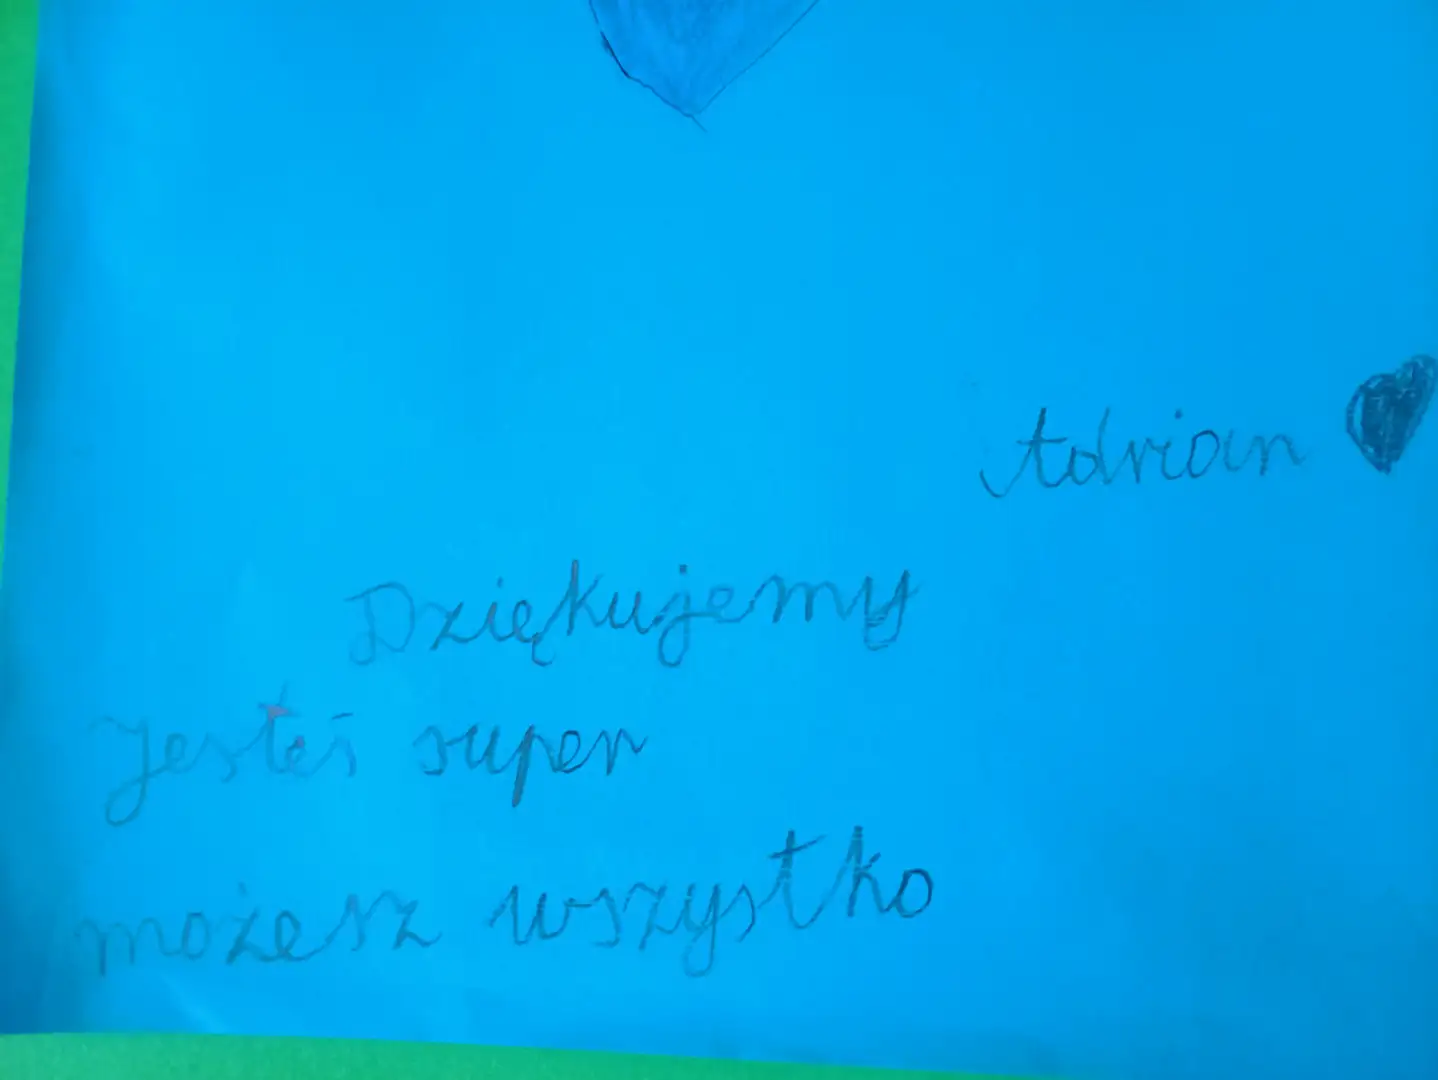 Adrian
Dziękujemy
Jesteś super
możesz wszystko